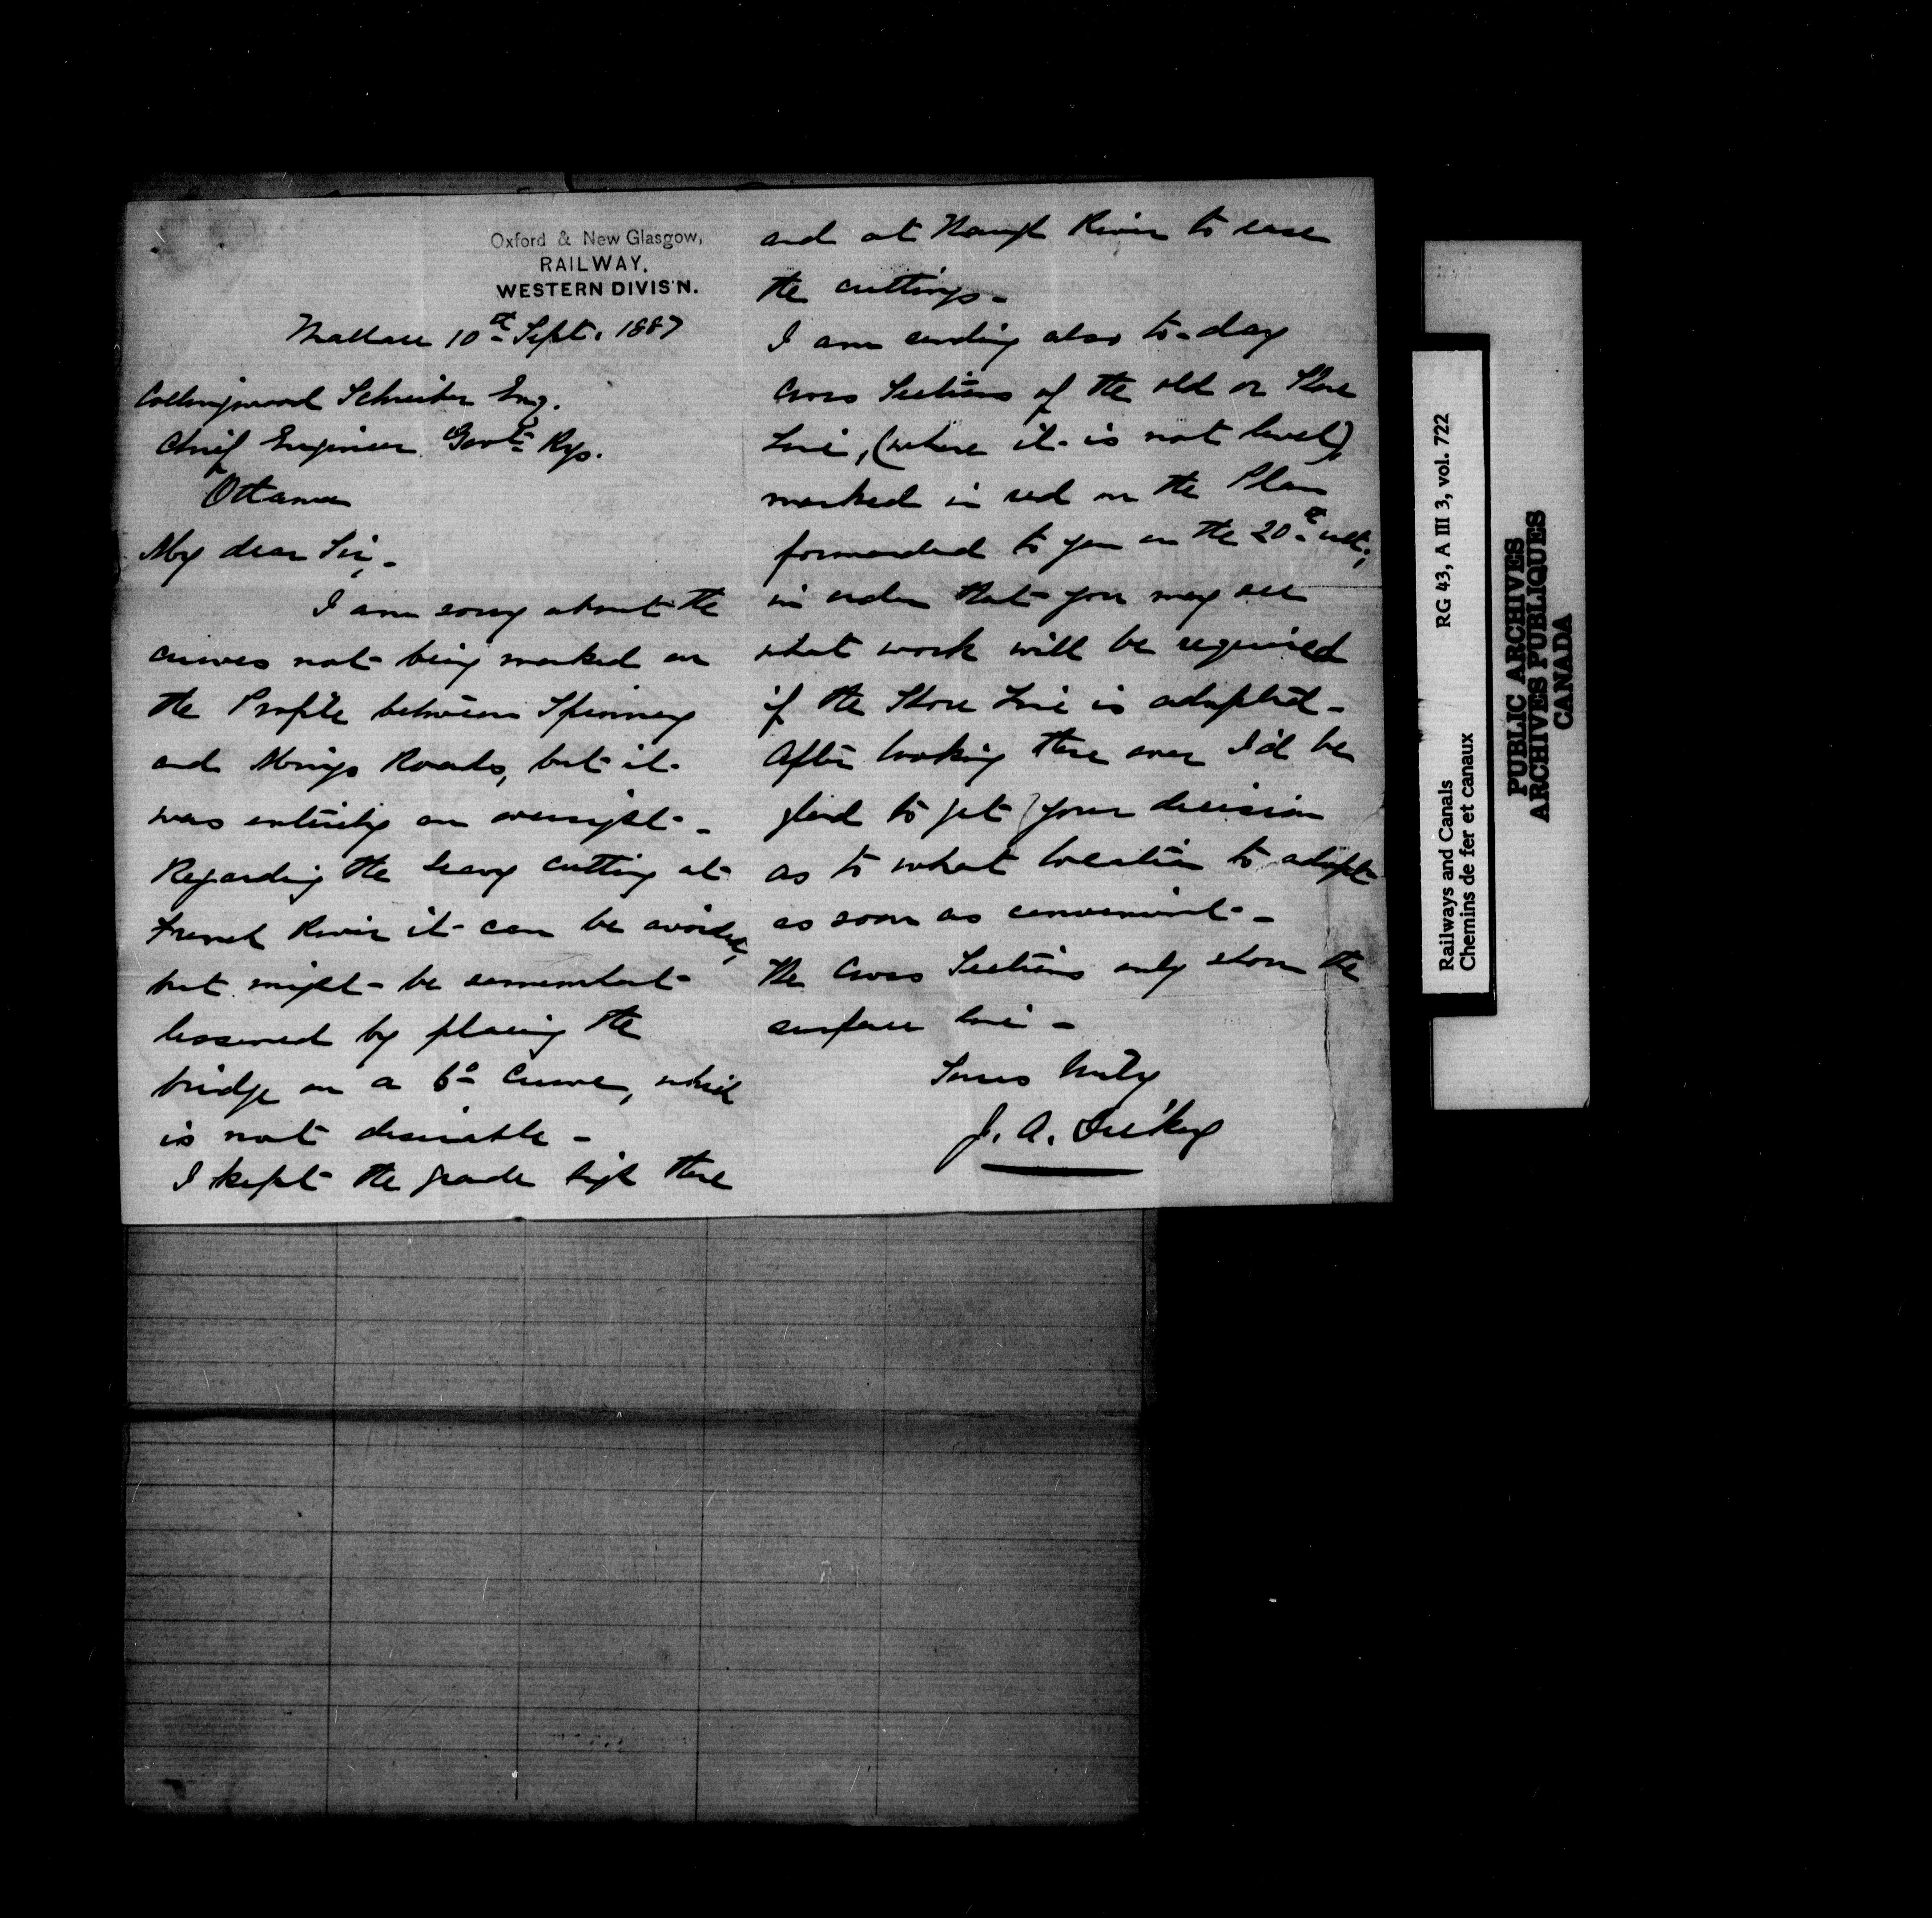 Oxford & New Glasgow,
RAILWAY.
WESTERN DIVIS'N.
Wallace 10th Sept. 1887
Collingwood Schreiber Esq.
Chief Engineer Govt Rys.
Ottawa
My dear Sir,-
I am sorry about the
curves not being marked on
the Profile between Spinney
and Roads, but it
was entirely an oversight -
Regarding the heavy cutting at
French River it can be avoided,
but might be somewhat
lessened by placing the
bridge on a 6° Curve, which
is not desirable -
I kept the grade high there
and at Waugh River to ease
the cuttings -
I am sending also to-day
Cross Sections of the old or Shore
Line, (where it is not level)
marked in red on the Plan
forwarded to you on the 20th ult.,
in order that you may see
what work will be required
if the Shore Line is adopted -
After looking these over I'd be
glad to get your decision
as to what location to adopt
as soon as convenient -
The Cross Sections only show the
surface line -
Yours truly
J. A. Dickey
Railways and Canals RG 43, A III 3, vol. 722
Chemins de fer et canaux
PUBLIC ARCHIVES
ARCHIVES PUBLIQUES
CANADA